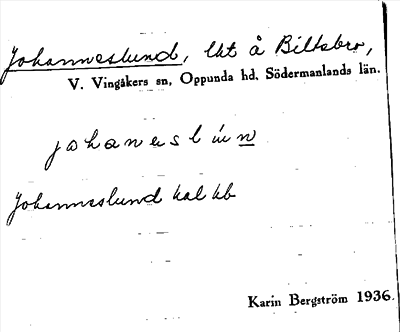 Johanneslund, lht å Biltsbro,
V. Vingåkers sn, Oppunda hd, Södermanlands län.
johaneslu̍n
Johanneslund kal kb
Karin Bergström 1936.